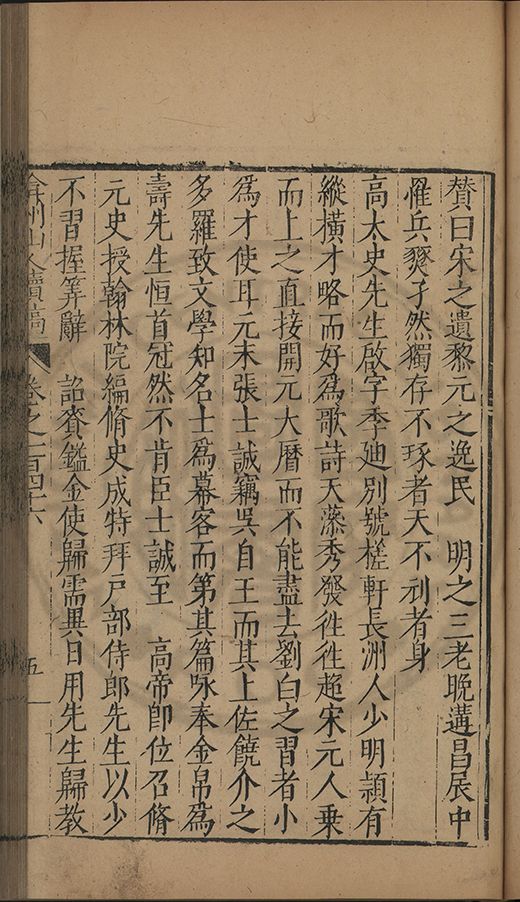 贊曰宋之遺黎元之逸民　明之三老晚遘昌辰中
罹兵燹孑然獨存不琢者天不刓者身
高太史先生啟字季廸別號槎軒長洲人少明穎有
縱橫才略而好為歌詩天藻秀發徃徃超宋元人乗
而上之直接開元大曆而不能盡去劉白之習者小
為才使耳元末張士誠竊吳自王而其上佐饒介之
多羅致文學知名士為幕客而第其篇咏奉金帛為
壽先生恒首冠然不肯臣士誠至　高帝即位召脩
元史授翰林院編脩史成特拜戶部侍郎先生以少
不習握筭辭　詔賚鑑金使歸需異日用先生歸教
弇州山人續稿　卷之一百四十六　五